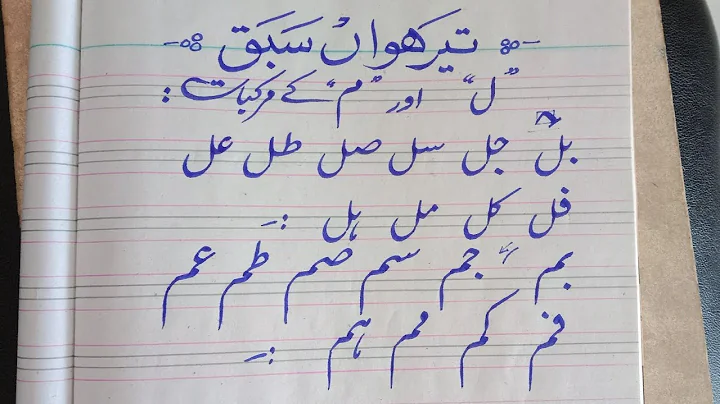 تیرھواں سَبَق
"ل" اور "م" کے مرکبات :
بل جل سل صل طل عل
فل کل مل ہل :۔
بم جم سم صم طم عم
فم کم مم ہم :۔